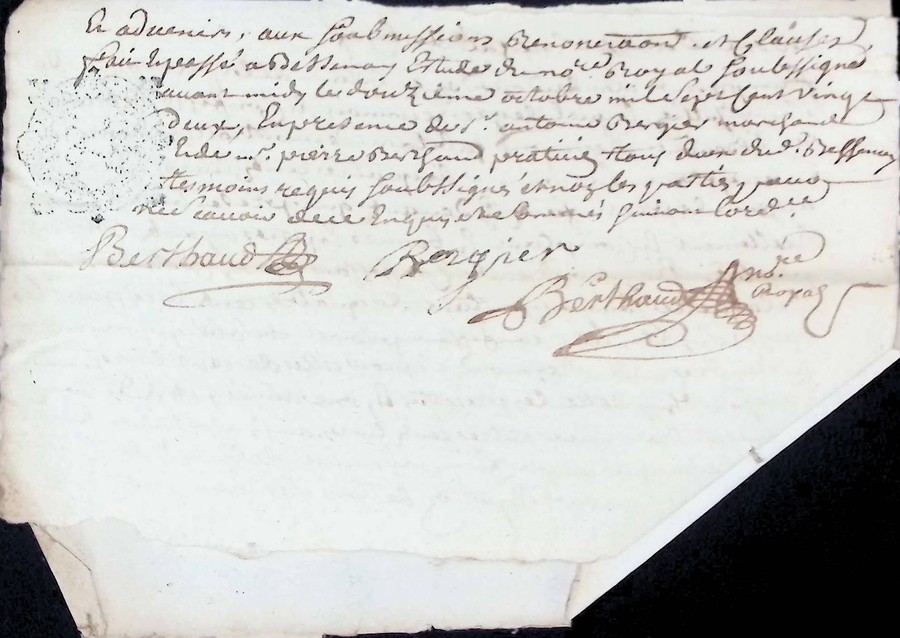 Et advenirs, aux soubmissions Renonciaon et Clauses
fait et passé a Bessenay Estude du no.re Royal soubsigné
avant midy le douzième octobre mil sept Cent vingt
deux, En presence de s.r antoine Bergier marchand
Et de m.e pierre Berthaud praticien tous deux dud. Bessenay
tesmoins requis soubsignés et non les parties pour
ne scavoir de ce Enquis et sommés suivant lord.ce
Berthaud Bergier
Berthaud no.re
Royal